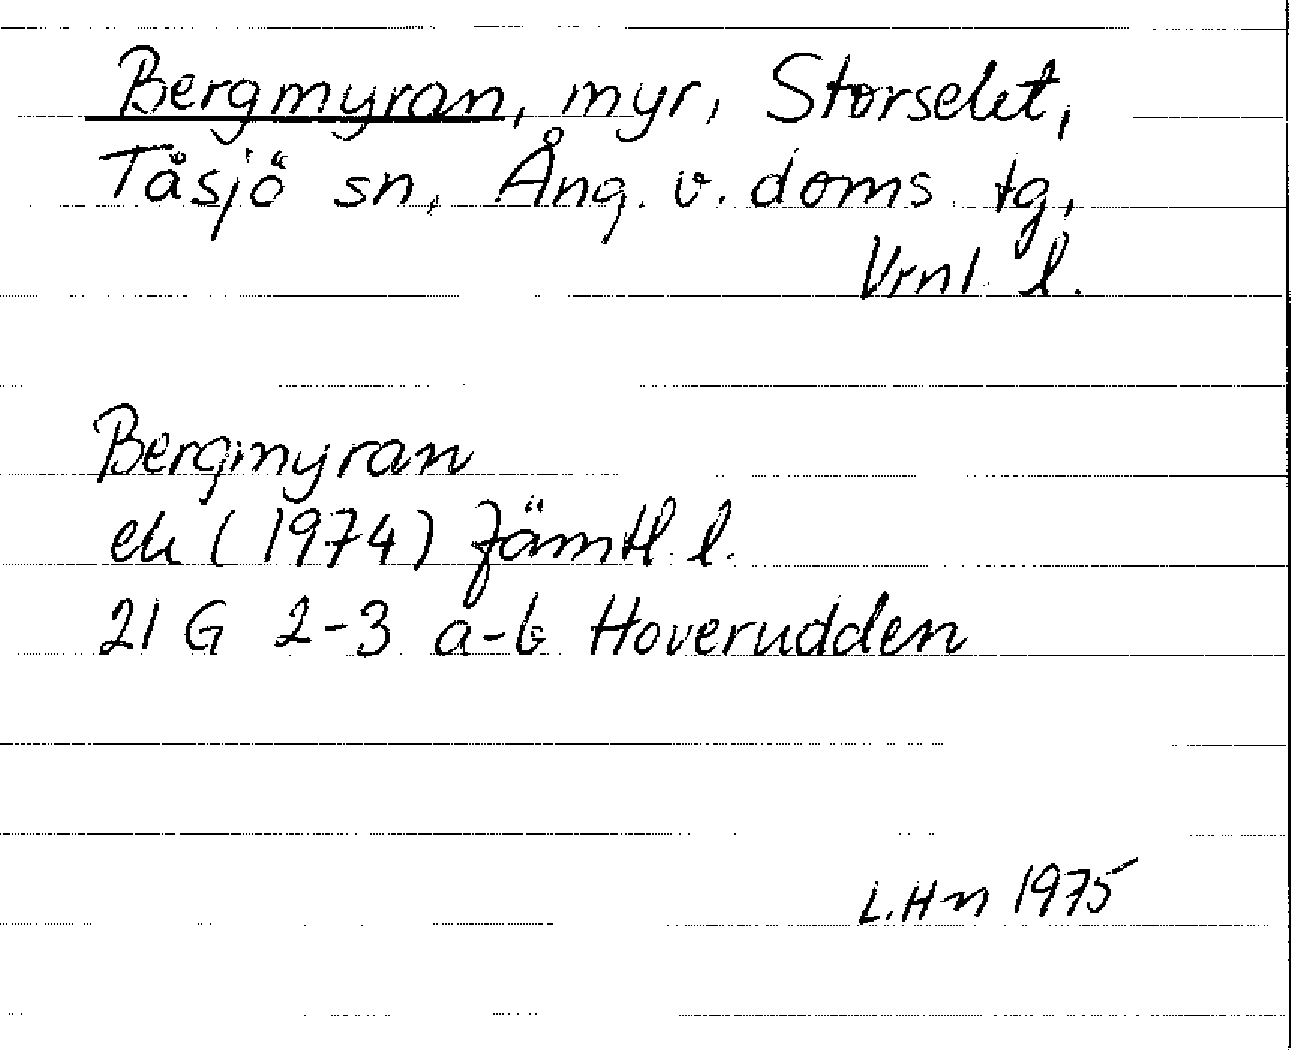 Bergmyran, myr, Storselet,
Tåsjö sn, Ång. v. doms. tg,
Vrnl. l.
Bergmyran
ek (1974) Jämtl. l.
21 G 2-3 a-b Hoverudden
L.Hn 1975